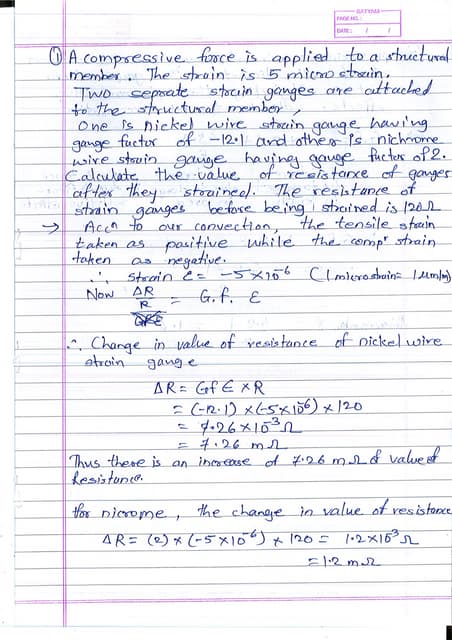 SATYAM
PAGE NO.:
DATE: / /
① A compressive force is applied to a structural
member. The strain is 5 micro strain.
Two seprate strain gauges are attached
to the structural member,
One is nickel wire strain gauge having
gauge factor of -12.1 and other is nichrome
wire strain gauge having gauge factor of 2.
Calculate the value of resistance of gauges
after they strained. The resistance of
strain gauges before being strained is 120Ω
→ Accⁿ to our convection, the tensile strain
taken as positive while the compr strain
taken as negative.
∴ Strain ε = -5×10⁻⁶ (1 microstrain = 1 μm/m)
Now ΔR/R = G.f. ε
∴ Change in value of resistance of nickel wire
strain gauge
ΔR = Gf ε × R
= (-12.1) × (-5×10⁻⁶) × 120
= 7.26 × 10⁻³ Ω
= 7.26 mΩ
Thus there is an increase of 7.26 mΩ of value of
Resistance.
for nicrome, the change in value of resistance
ΔR = (2) × (-5×10⁻⁶) × 120 = 1.2×10⁻³ Ω
= 1.2 mΩ